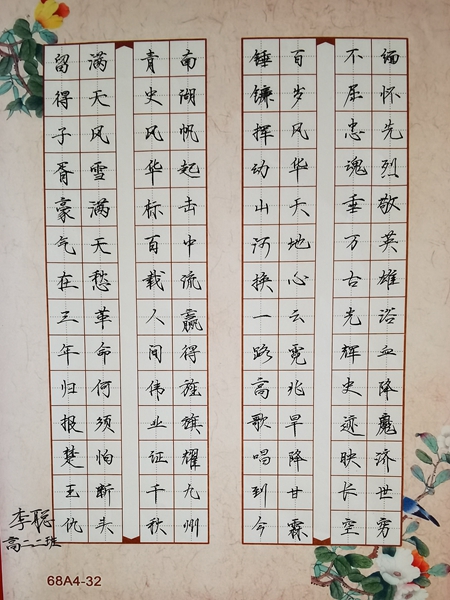 缅怀先烈敬英雄浴血降魔济世穷
不屈忠魂垂万古光辉史迹映长空
百岁风华天地心云霓兆旱降甘霖
锤镰挥动山河换一路高歌唱到今
南湖帆起击中流赢得旌旗耀九州
青史风华标百载人间伟业证千秋
满天风雪满天愁革命何须怕断头
留得子胥豪气在三年归报楚王仇
李聪
高二二班
68A4-32